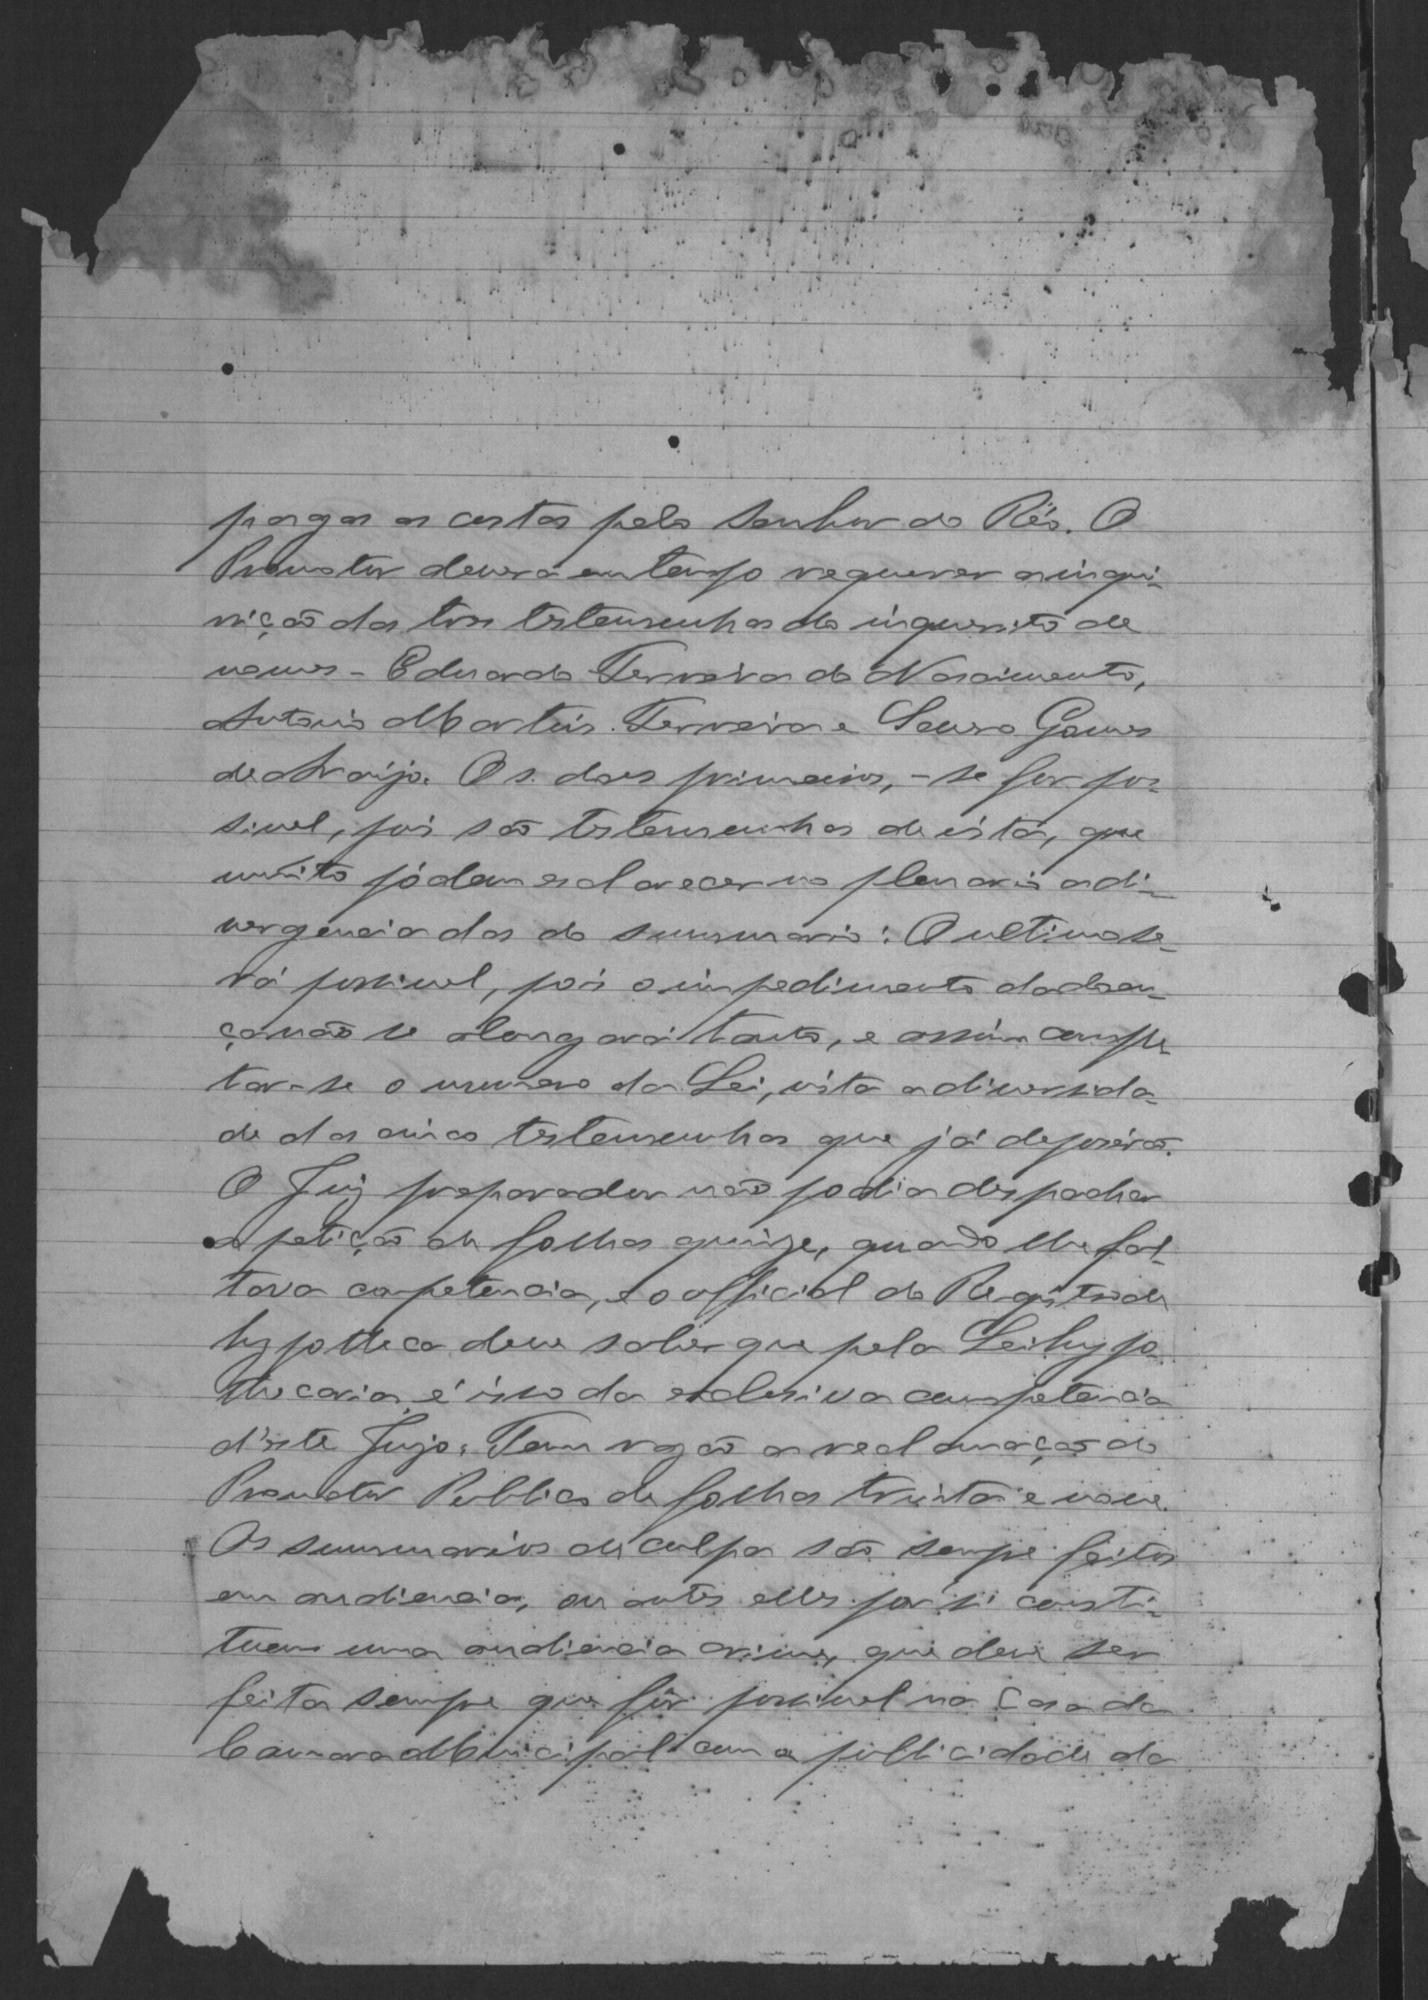 pagas as custas pelo Senhor do Réo. O
Promotor deverá em tempo requerer a inqui-
rição das tres testemunhas do inquerito de
nomes - Eduardo Ferreira do Nascimento,
Antonio Martins Ferreira e Gomes
de Araujo. Os dous primeiros, - se for pos-
sivel, pois são testemunhas de vista, que
muito pódem esclarecer no plenario a di-
vergencia das do summario: O ultimo se-
rá possivel, pois o impedimento da doen-
ça não se alongará tanto, e assim comple-
tar-se o numero da Lei, vista a diversida-
de das cinco testemunhas que já deposerão.
O Juiz preparador não podia despachar
a petição de folhas quinze, quando lhe fal-
tava competencia, e o official do Registro de
hypotheca deve saber que pela Lei hypo
thecaria é isso da exclusiva competencia
d'este Juizo. Tem razão a reclamação do
Promotor Publico de folhas trinta e nove.
Os summarios de culpa são sempre feitos
em audiencia, ou antes elles por si consti-
tuem uma audiencia crime, que deve ser
feita sempre que fôr possivel na Casa da
Camara Municipal com a publicidade da